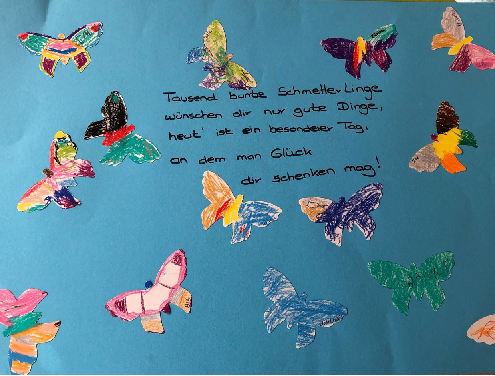 Tausend bunte Schmetterlinge
wünschen dir nur gute Dinge,
heut' ist ein besonderer Tag,
an dem man Glück
dir schenken mag!